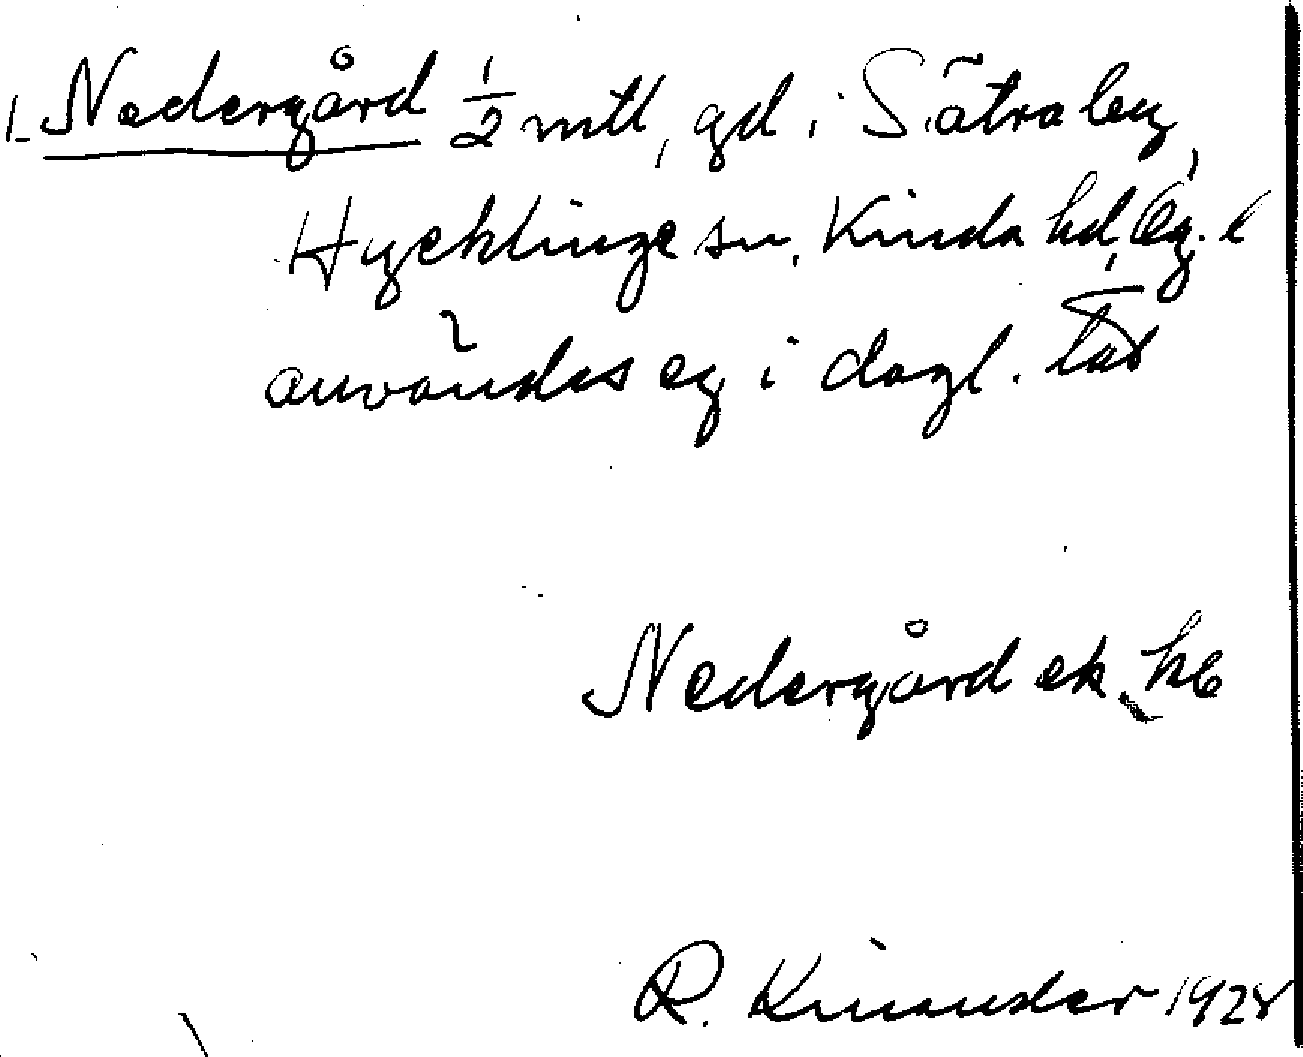 1. Nedergård 1/2 mtl, gd i Sätra by,
Hycklinge sn, Kinda hd, Ög.
användes ej i dagl. tal
Nedergård ek. kb
R. Kinander 1928